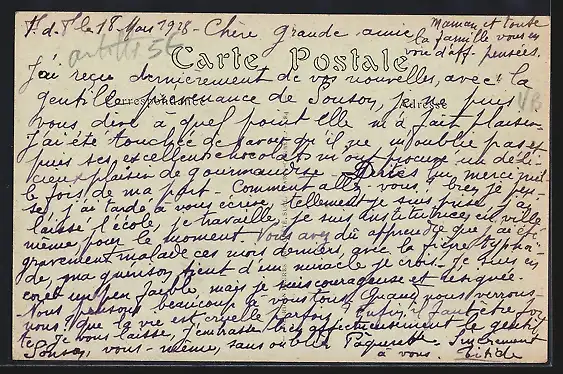 V. d. V. le 18 Mars 1928 - Chère grande amie
Maman et toute
la famille vous en
voie d'aff. pensées.
Carte Postale
J'ai reçu dernièrement de vos nouvelles, avec la
Correspondance
Adresse
gentille provenance de Souson, je ne puis
vous dire à quel point elle m'a fait plaisir
J'ai été touchée de savoir qu'il ne m'oublie pas et
puis ses excellents chocolats m'ont procuré un déli-
cieux plaisir de gourmandise - Dites lui merci mil
le fois de ma part - Comment allez-vous? bien je pen-
se, j'ai tardé à vous écrire, tellement je suis prise, j'ai
laissé l'école, je travaille, je suis institutrice en ville
même, pour le moment. Vous avez dû apprendre que j'ai été
gravement malade ces mois derniers, avec la fièvre typhoï-
de, ma guérison tient d'un miracle je crois, je suis en
core un peu faible, mais je suis courageuse et résignée.
Nous pensons beaucoup à vous tous! Quand nous verrons-
nous? que la vie est cruelle parfois! Enfin, il faut être for
te. Je vous laisse, j'embrasse bien affectueusement le gentil
Souson, vous-même, sans oublier Pâquerette. Sincèrement
à vous.